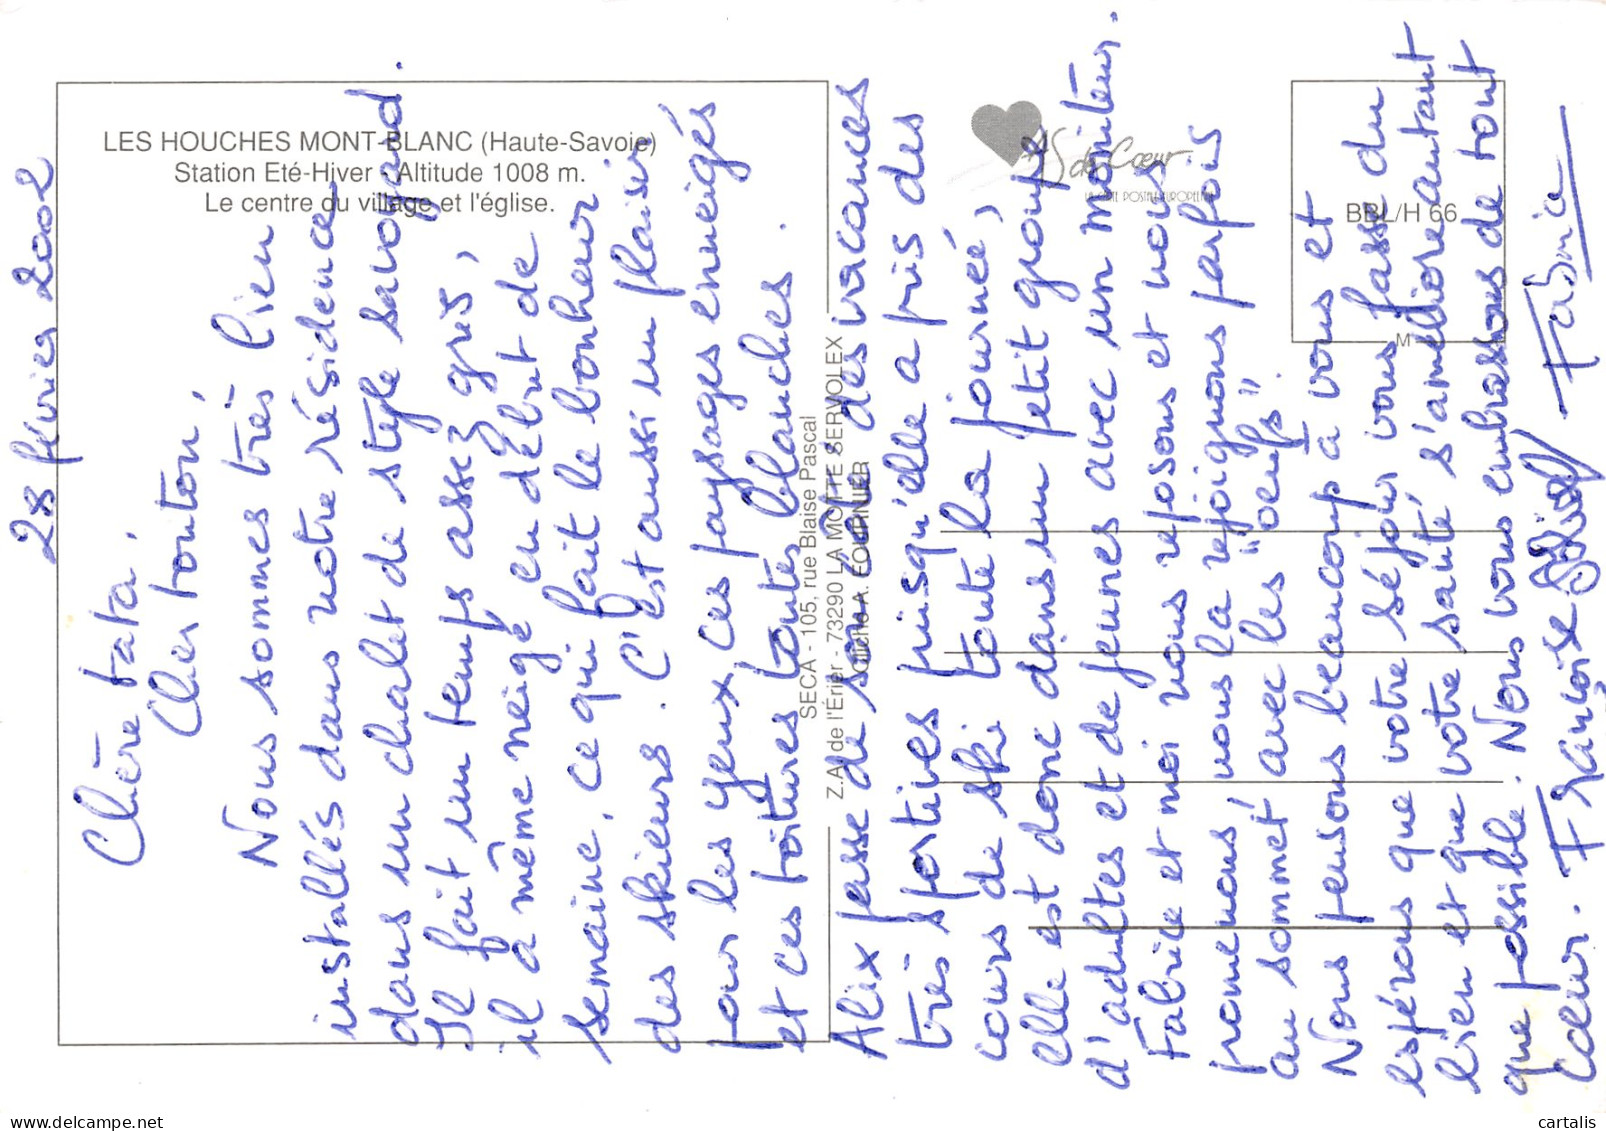 LES HOUCHES MONT-BLANC (Haute-Savoie)
Station Eté-Hiver - Altitude 1008 m.
Le centre du village et l'église.
As de Cœur
LA CARTE POSTALE EUROPEENNE
BBL/H 66
M
SECA - 105, rue Blaise Pascal
Z.A. de l'Érier - 73290 LA MOTTE SERVOLEX
Cliché A. FOURNIER
28 février 2002
Chère tata,
Cher tonton,
Nous sommes très bien
installés dans notre résidence
dans un chalet de style savoyard.
Il fait un temps assez gris,
il a même neigé en début de
semaine, ce qui fait le bonheur
des skieurs. C'est aussi un plaisir
pour les yeux, ces paysages enneigés
et ces toitures toutes blanches.
Alix passe de son côté des vacances
très sportives puisqu'elle a pris des
cours de ski toute la journée,
elle est donc dans un petit groupe
d'adultes et de jeunes avec un moniteur.
Fabrice et moi nous reposons et nous
promenons, nous la rejoignons parfois
au sommet avec les "oeufs".
Nous pensons beaucoup à vous et
espérons que votre séjour vous fasse du
bien et que votre santé s'améliore autant
que possible. Nous vous embrassons de tout
cœur. Françoise Fabrice
cartalis